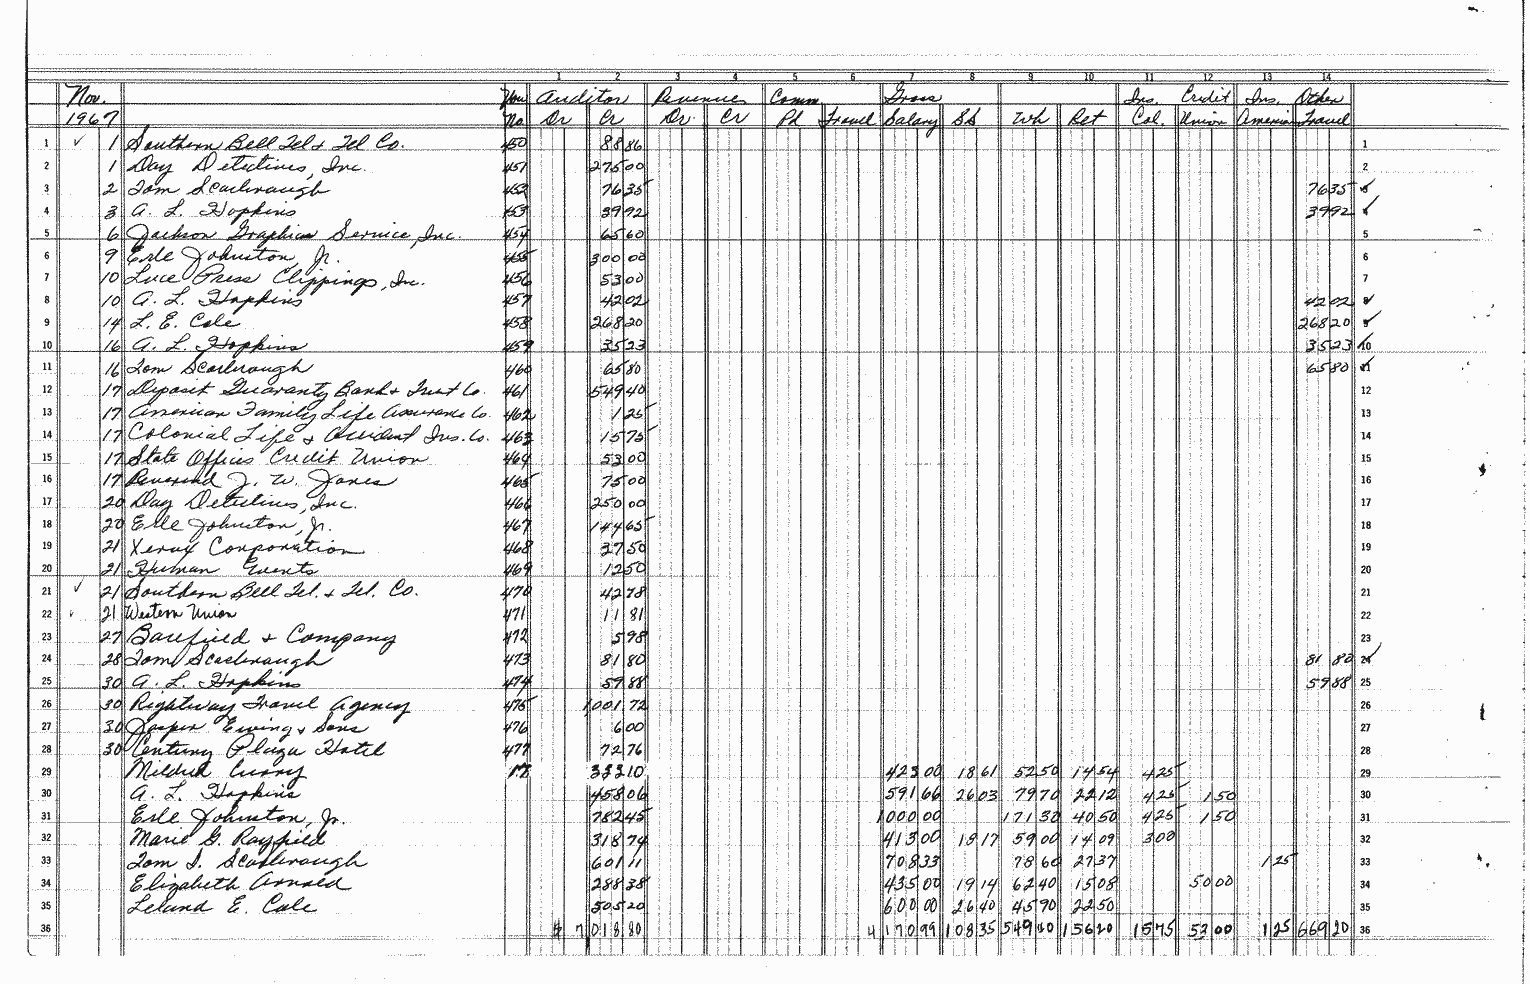 1 2 3 4 5 6 7 8 9 10 11 12 13 14
Nov. Vou Auditor Revenue Comm Gross Ins. Credit Ins. Other
1967 No. Dr Cr Dr. Cr Pd Travel Salary SS Wh Ret Col. Union American Travel
1 ✓ 1 Southern Bell Tel & Tel Co. 450 88 86 1
2 1 Day Detectives, Inc. 451 275 00 2
3 2 Tom Scarbrough 452 76 35 76 35 3
4 3 A. L. Hopkins 453 39 92 39 92 4
5 6 Jackson Graphics Service, Inc. 454 65 60 5
6 9 Erle Johnston, Jr. 455 300 00 6
7 10 Luce Press Clippings, Inc. 456 53 00 7
8 10 A. L. Hopkins 457 42 02 42 02 8
9 14 L. E. Cole 458 268 20 268 20 9
10 16 A. L. Hopkins 459 35 23 35 23 10
11 16 Tom Scarbrough 460 65 80 65 80 11
12 17 Deposit Guaranty Bank & Trust Co. 461 549 40 12
13 17 American Family Life Assurance Co. 462 1 25 13
14 17 Colonial Life & Accident Ins. Co. 463 15 75 14
15 17 State Offices Credit Union 464 53 00 15
16 17 Reverend J. W. Jones 465 75 00 16
17 20 Day Detectives, Inc. 466 250 00 17
18 20 Erle Johnston, Jr. 467 144 65 18
19 21 Xerox Corporation 468 37 50 19
20 21 Human Events 469 12 50 20
21 ✓ 21 Southern Bell Tel. & Tel. Co. 470 42 78 21
22 21 Western Union 471 11 81 22
23 27 Barefield & Company 472 5 98 23
24 28 Tom Scarbrough 473 81 80 81 80 24
25 30 A. L. Hopkins 474 59 88 59 88 25
26 30 Rightway Travel Agency 475 1,001 72 26
27 30 Jasper Ewing & Sons 476 6 00 27
28 30 Century Plaza Hotel 477 72 76 28
29 Mildred Curry 17 333 10 423 00 18 61 52 50 14 54 4 25 29
30 A. L. Hopkins 458 06 591 66 26 03 79 70 22 12 4 25 1 50 30
31 Erle Johnston, Jr. 782 45 1000 00 171 30 40 50 4 25 1 50 31
32 Marie G. Rayfield 318 74 413 00 18 17 59 00 14 09 3 00 32
33 Tom S. Scarbrough 601 11 708 33 78 60 27 37 1 25 33
34 Elizabeth Arnold 288 38 435 00 19 14 62 40 15 08 50 00 34
35 Leland E. Cole 505 20 600 00 26 40 45 90 22 50 35
36 $ 7 018 80 4 170 99 108 35 549 40 156 20 15 75 53 00 1 25 669 20 36